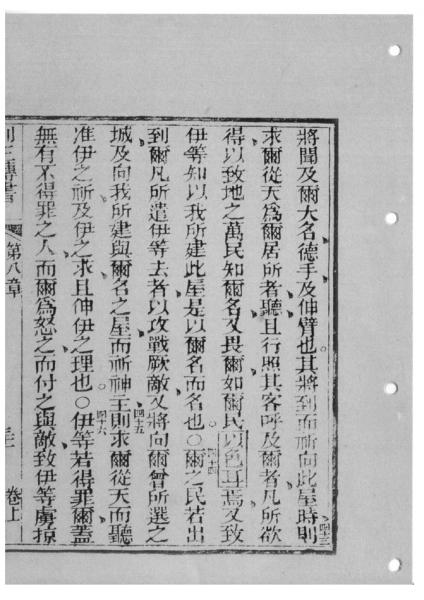 將聞及爾大名德手及伸臂也其將到而祈向此屋時則
四十三
求爾從天爲爾居所者聽且行照其客呼及爾者凡所欲
得以致地之萬民知爾名又畏爾如爾民以色耳焉又致
伊等知以我所建此屋是以爾名而名也○爾之民若出
四十四
到爾凡所遣伊等去者以攻戰厥敵又將向爾曾所選之
城及向我所建與爾名之屋而祈神主則求爾從天而聽
四十五
准伊之祈及伊之求且伸伊之理也○伊等若得罪爾蓋
四十六
無有不得罪之人而爾爲怒之而付之與敵致伊等虜掠
第八章
卷上